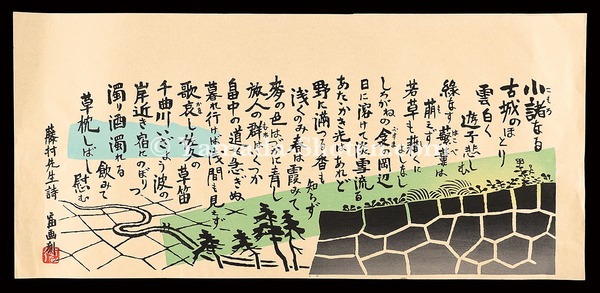 小諸なる
古城のほとり
雲白く
遊子悲しむ
緑なす蘩蔞は
萌えず
若草も藉くによしなし
しろがねの衾の岡辺
日に溶けて淡雪流る
あたゝかき光はあれど
野に満つる香も知らず
浅くのみ春は霞みて
麥の色はつかに青し
旅人の群はいくつか
畠中の道を急ぎぬ
暮れ行けば浅間も見えず
歌哀し佐久の草笛
千曲川いざよふ波の
岸近き宿にのぼりつ
濁り酒濁れる飲みて
草枕しばし慰む
藤村先生詩